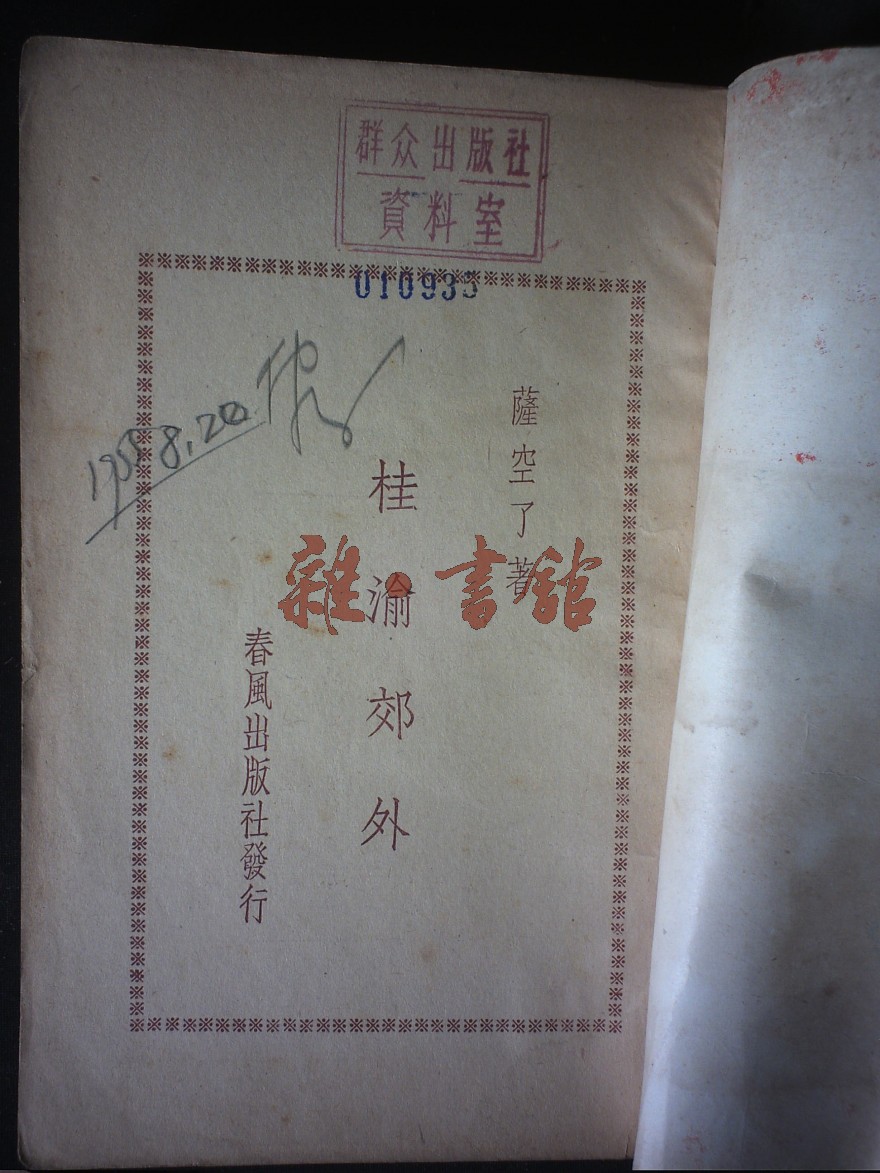 群众出版社
資料室
010935
1955.8.20
薩空了著
桂渝郊外
春風出版社發行
雜·書館